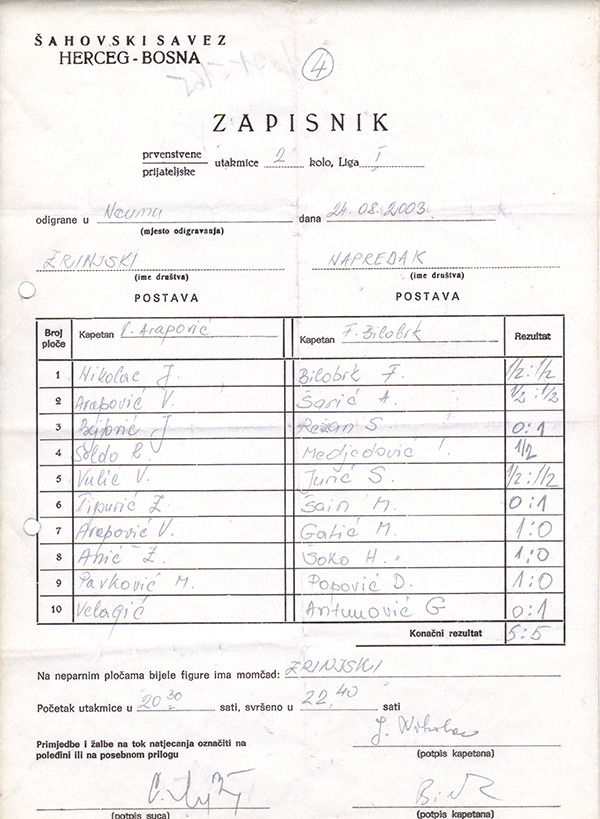 ŠAHOVSKI SAVEZ
HERCEG-BOSNA
4
ZAPISNIK
prvenstvene
prijateljske
utakmice 2 kolo, Liga I
odigrane u Neumu dana 24.08.2003
(mjesto odigravanja)
ZRINJSKI NAPREDAK
(ime društva) (ime društva)
POSTAVA POSTAVA
Broj ploče Kapetan V. Arapović Kapetan F. Bilobrk Rezultat
1 Nikolac J. Bilobrk F. 1/2:1/2
2 Arapović V. Šarić A. 1/2:1/2
3 J Režan S. 0:1
4 Šoldo Medjedović 1/2
5 Vulić V. Jurić S. 1/2:1/2
6 Tipurić Ž. Šain M. 0:1
7 Arapović V. Galić M. 1:0
8 Anić Ž. Šoko H. 1:0
9 Pavković M. Popović D. 1:0
10 Velagić Antunović G 0:1
Konačni rezultat 5:5
Na neparnim pločama bijele figure ima momčad: ZRINJSKI
Početak utakmice u 20 30 sati, svršeno u 22,40 sati
J. Nikolac
Primjedbe i žalbe na tok natjecanja označiti na
poleđini ili na posebnom prilogu
(potpis kapetana)
(potpis suca) (potpis kapetana)